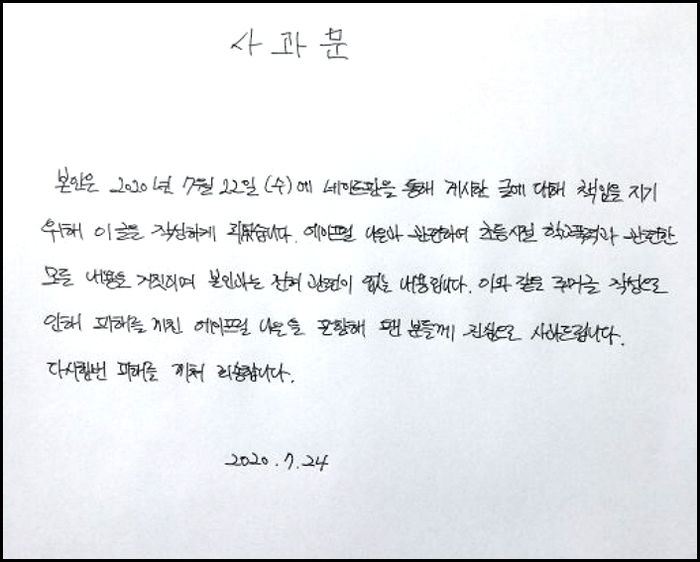 사과문
본인은 2020년 7월 22일(수)에 네이트판을 통해 게시한 글에 대해 책임을 지기
위해 이 글을 작성하게 되었습니다. 에이프릴 나은과 관련하여 초등시절 학교폭력과 관련한
모든 내용은 거짓이며 본인과는 전혀 관련이 없는 내용입니다. 이와 같은 루머글 작성으로
인해 피해를 끼친 에이프릴 나은을 포함해 팬분들께 진심으로 사과드립니다.
다시한번 피해를 끼쳐 죄송합니다.
2020.7.24